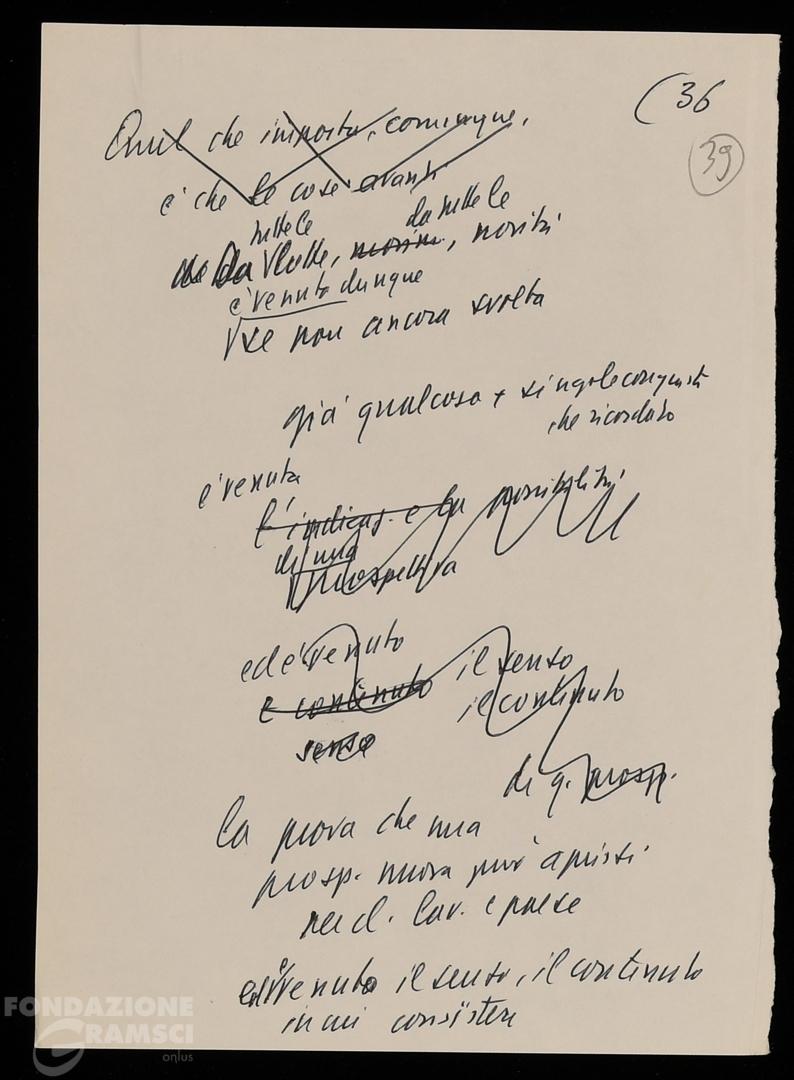 (36
39
Quel che importa, comunque,
è che le cose avanti
tutte le da tutte le
Da lotte, novità
è venuta dunque
se non ancora svolta
già qualcosa + singole conquiste
che ricordato
è venuta
l'indicaz. e la possibilità
di una
prospettiva
ed è venuto
e contenuto il senso
il contenuto
senso
di q. prosp.
la prova che una
prosp. nuova può aprirsi
per cl. lav. e paese
ed è venuto il senso, il contenuto
in cui consistere
FONDAZIONE
GRAMSCI
onlus